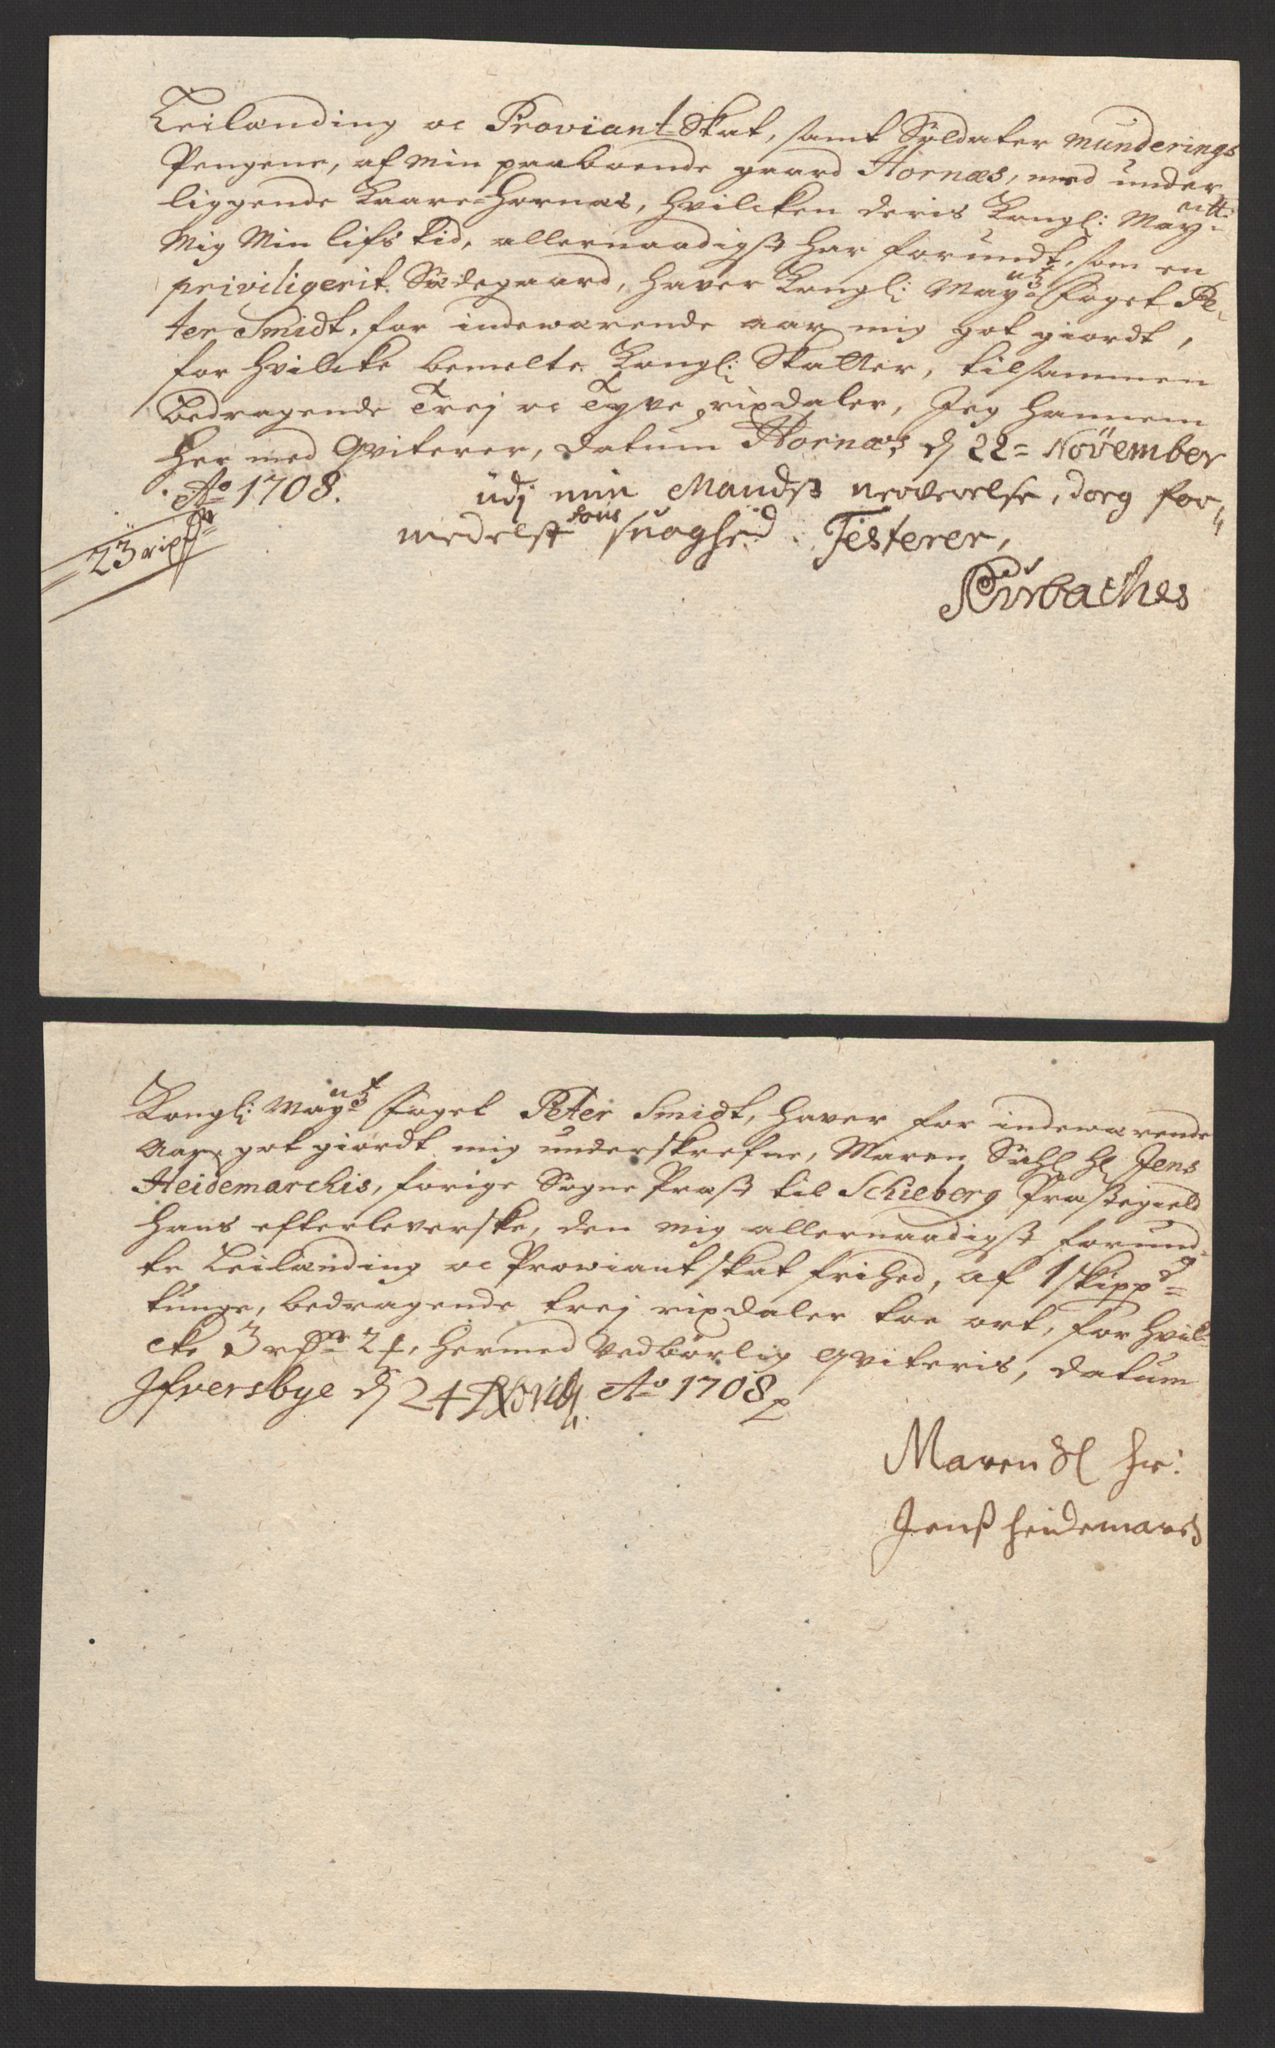 Leilanding oc Proviant-Skat, samt Soldater munderings
Pengene, af Min paaboende gaard Hornæs, med under
liggende Kaare-Hornæs, hvilcken deris Kongl: Maytt:
Mig Min lifs tid, allernaadigst har forundt, som en
priviligerit Sædegaard, haver Kongl: Mayts foget Pe-
ter Smidt, for indeværende aar mig got giordt,
for hvilcke bemelte Kongl: Skatter, tilsammen
bedragende Trej oc Tyve rixdaler, Jeg hannem
her med qviterer, datum Hornæs d 22= November
Ao 1708. udj min Mands nerværelse, dog for
23 rixdr medelst hans suaghed Testerer,
Pürbaches
Kongl: Mayts foget Peter Smidt, haver for indeværende
aar got giordt mig underskrefne, Maren Sahl Hr Jens
Heidemarchis, forige Sogne Præst til Schieberg Præstegield
hans efterleverske, den mig allernaadigst forund-
te Leilanding oc Prowiant skat frihed, af 1 skippd
tunge, bedragende trej rixdaler toe ort, for hvil-
cke 3 rdr 2 , hermed vedbørlig qviteris, datum
Ifversbye d 24 Novb. Ao 1708
Maren Sl hr:
Jenß heidemarks